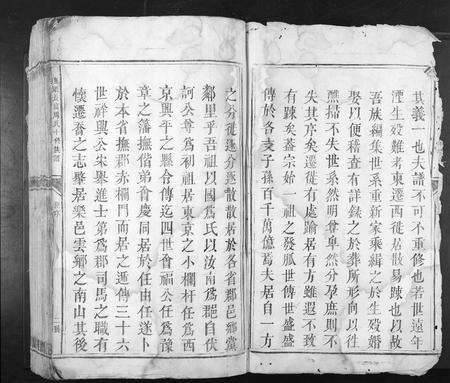 其義一也夫譜不可不重修也若世遠年
湮生殁難考東遷西徙居散易踈也以故
吾族編集世系重新家乘緝之於生殁婚
娶以便稽查有詳錄之於葬所形向以徃
醮掃不失世系然明尊卑然分孕庶則不
失其序矣遷從有處踰居有方雖遐不致
有踈矣葢宗始一祖之發脈世傳世盛盛
傳於各支子孫百千萬億焉夫居自一方
之分徙迯分逐散散居於各省郡邑鄉黨
鄰里乎吾祖以國爲氏以汝南爲郡自俠
訶公尊爲初祖居東京之小欄杆任西
京興平之縣令傳迄四世會福公任爲豫
章之藩撫偕弟會慶同居於任由任遂卜
於本省撫郡赤欄門而居之遞傳三十六
世祥興公宋舉進士第爲郡司馬之職有
懐遷喬之志擇居樂邑雲鄉之南山其後